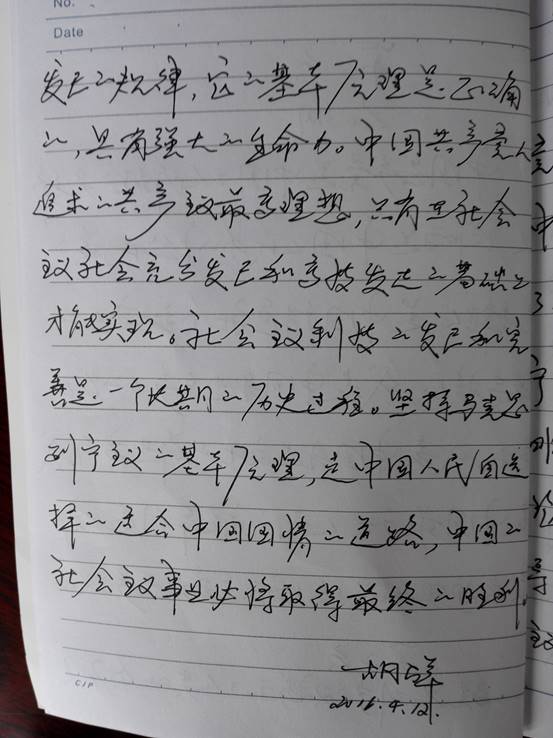 No.
Date
发展的规律,它的基本原理是正确
的,具有强大的生命力。中国共产党人
追求的共产主义最高理想,只有在社会
主义社会充分发展和高度发达的基础上
才能实现。社会主义制度的发展和完
善是一个长期的历史过程。坚持马克思
列宁主义的基本原理,走中国人民自选
择的适合中国国情的道路,中国的
社会主义事业必将取得最终的胜利。
2016.4.12.
CIP